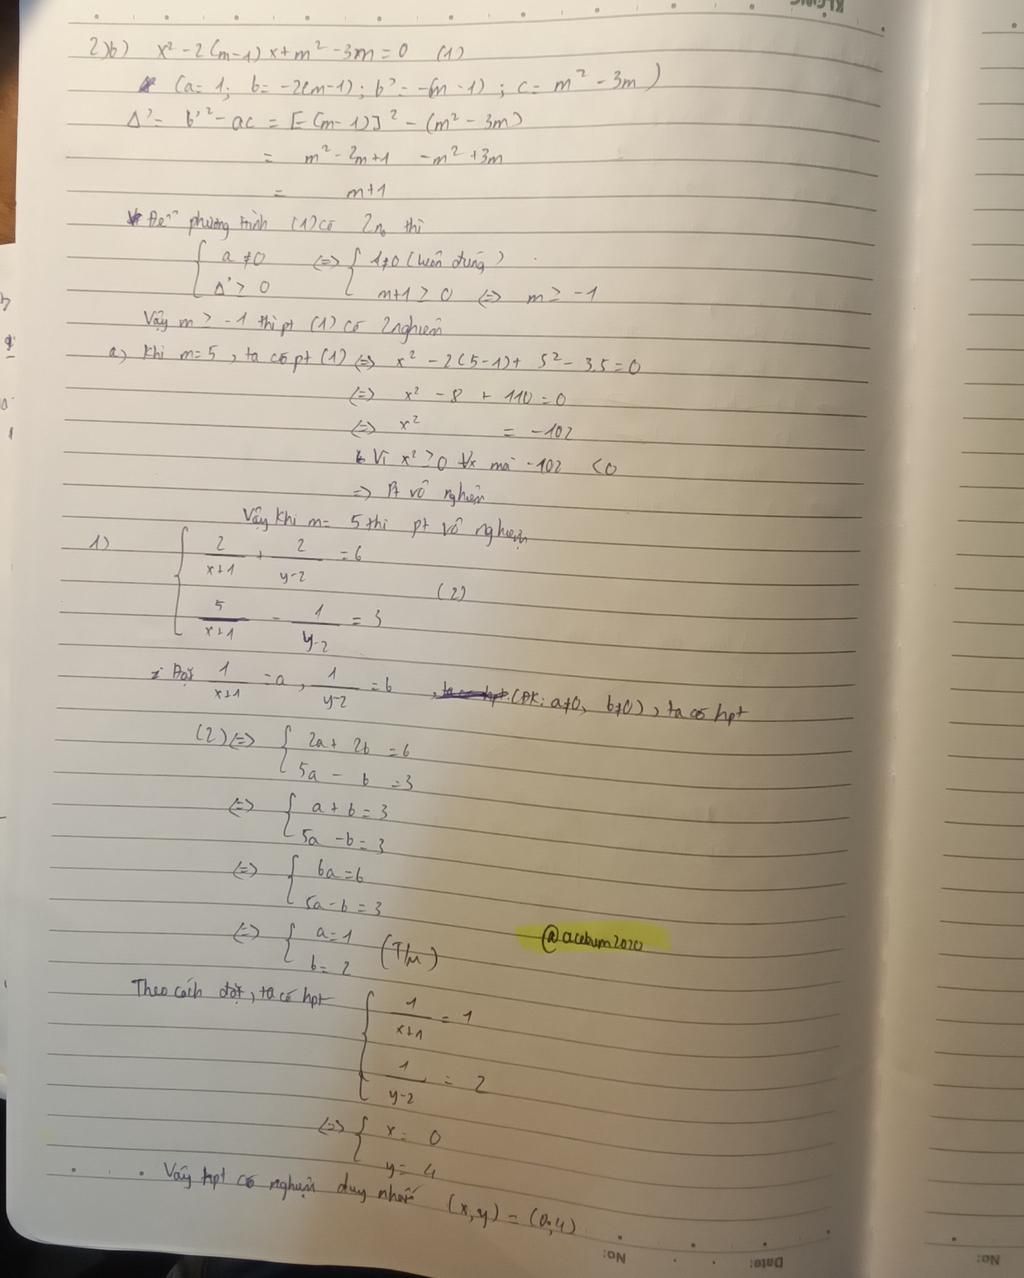 2)b) x² - 2(m-1)x + m² - 3m = 0 (1)
(a = 1; b = -2(m-1); b' = -(m-1); c = m² - 3m)
Δ' = b'² - ac = [-(m-1)]² - (m² - 3m)
= m² - 2m + 1 - m² + 3m
= m + 1
Để phương trình (1) có 2n₀ thì
{ a ≠ 0 <=> { 1 ≠ 0 (luôn đúng)
Δ' ≥ 0 m+1 ≥ 0 <=> m ≥ -1
Vậy m ≥ -1 thì pt (1) có 2 nghiệm
a) Khi m = 5, ta có pt (1) <=> x² - 2(5-1) + 5² - 3.5 = 0
<=> x² - 8 + 110 = 0
<=> x² = -102
Vì x² ≥ 0 ∀x mà -102 < 0
=> Pt vô nghiệm
Vậy khi m = 5 thì pt vô nghiệm
1) { 2/(x+1) + 2/(y-2) = 6
(2)
5/(x+1) - 1/(y-2) = 3
Đặt 1/(x+1) = a, 1/(y-2) = b, (ĐK: a≠0, b≠0), ta có hpt
(2) <=> { 2a + 2b = 6
5a - b = 3
<=> { a + b = 3
5a - b = 3
<=> { 6a = 6
5a - b = 3
<=> { a = 1 (T/m)
b = 2
@acebum2020
Theo cách đặt, ta có hpt { 1/(x+1) = 1
1/(y-2) = 2
<=> { x = 0
y = 4
Vậy hpt có nghiệm duy nhất (x,y) = (0;4)
No:
Date:
No: